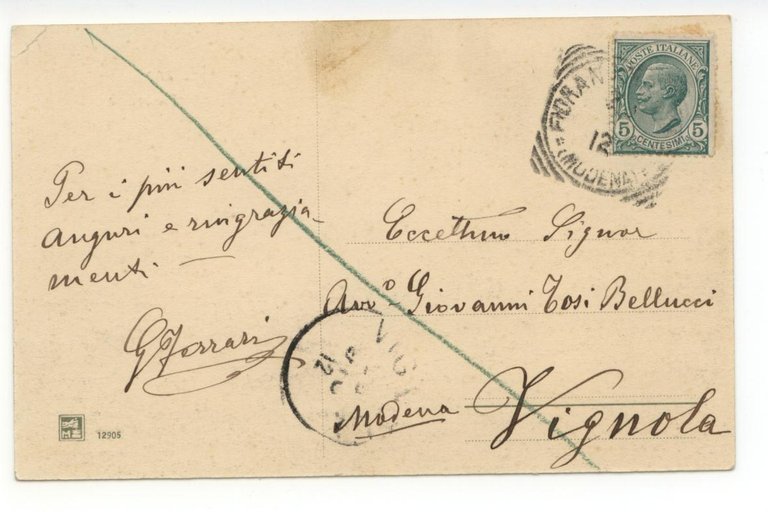 Per i più sentiti
auguri e ringrazia-
menti -
G Ferrari
12905
POSTE ITALIANE
5 5
CENTESIMI
FIORAN
12
(MODENA)
Eccellmo Signor
Avvo Giovanni Tosi Bellucci
Modena Vignola
VIG
12